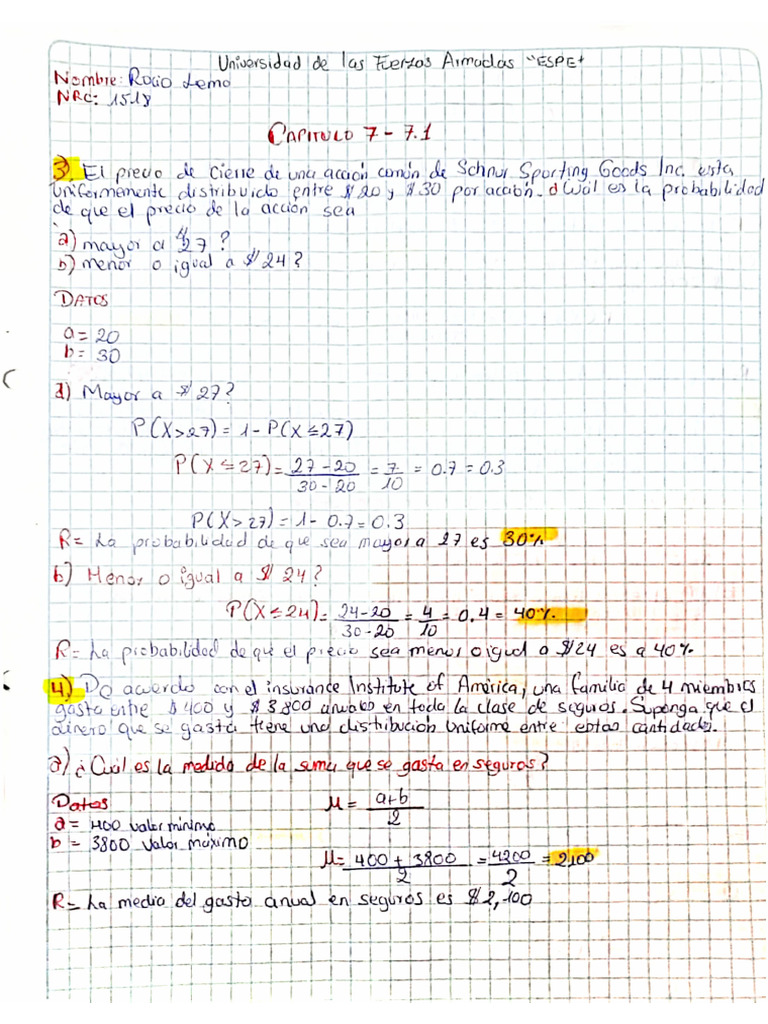 Universidad de las Fuerzas Armadas "ESPE"
Nombre: Rocio Lema
NRC: 1518
CAPITULO 7 - 7.1
3) El precio de cierre de una acción común de Schnur Sporting Goods Inc. esta
Uniformemente distribuido entre $20 y $30 por acción. ¿Cuál es la probabilidad
de que el precio de la acción sea
a) mayor a $27?
b) menor o igual a $24?
DATOS
a = 20
b = 30
a) Mayor a $27?
P(X>27) = 1 - P(X≤27)
P(X≤27) = 27-20 / 30-20 = 7/10 = 0.7 = 0.3
P(X>27) = 1 - 0.7 = 0.3
R= La probabilidad de que sea mayor a 27 es 30%
b) Menor o igual a $24?
P(X≤24) = 24-20 / 30-20 = 4/10 = 0.4 = 40%
R= La probabilidad de que el precio sea menos o igual a $24 es a 40%
4) De acuerdo con el insurance Institute of América, una familia de 4 miembros
gasta entre $400 y $3800 anuales en toda la clase de seguros. Suponga que el
dinero que se gasta tiene una distribución Uniforme entre estas cantidades.
a) ¿Cuál es la medida de la suma que se gasta en seguros?
Datos
μ = a+b / 2
a = 400 valor minimo
b = 3800 valor máximo
μ = 400 + 3800 / 2 = 4200 / 2 = 2,100
R= La media del gasto anual en seguros es $2,100